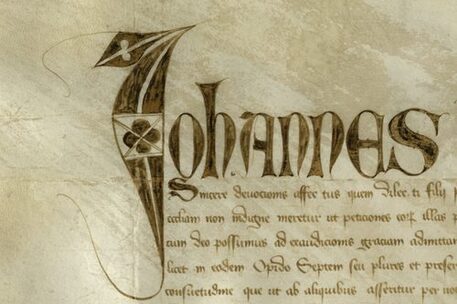 Johannes
Sincere deuocionis affec tus quem dilec ti filij
eccliam non indigne meretur ut peticiones eor illas p
cum deo possumus ad exaudicionis graciam admittam
licet in eodem Opido Septem seu plures et preser
consuetudine que ut ab aliquibus asseritur per no